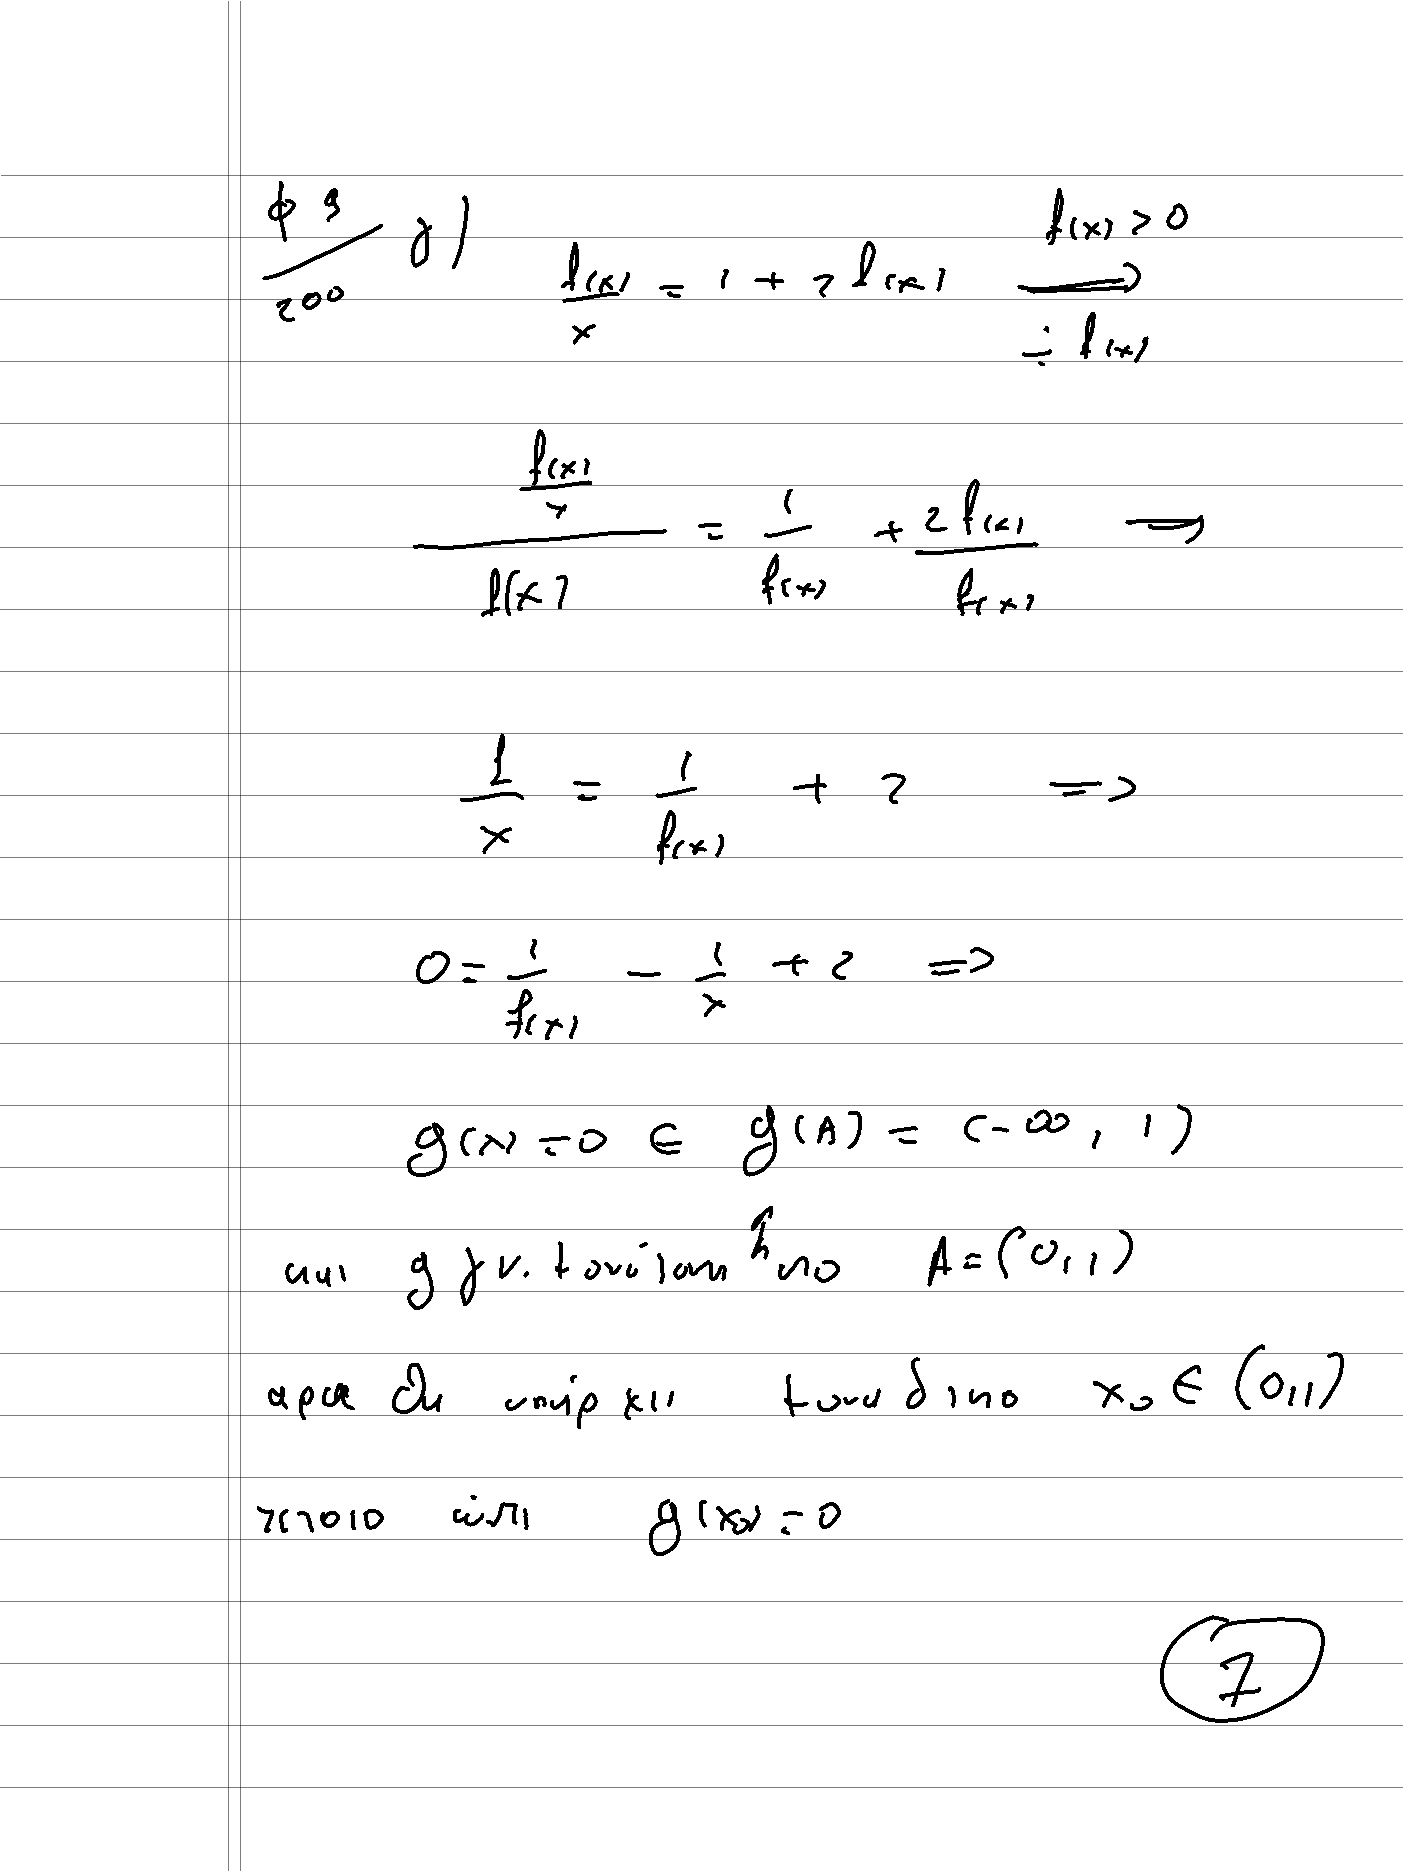 φ 9 / 200 γ) f(x)/x = 1 + 2 f(x) ⟹ f(x) > 0 ÷ f(x)
(f(x)/x) / f(x) = 1/f(x) + 2f(x)/f(x) ⟹
1/x = 1/f(x) + 2 =>
0 = 1/f(x) - 1/x + 2 =>
g(x) = 0 ∈ g(A) = (-∞, 1)
και g γν. μονότονη στο A = (0,1)
αρα θα υπάρχει μοναδικό x₀ ∈ (0,1)
τέτοιο ώστε g(x₀) = 0
7